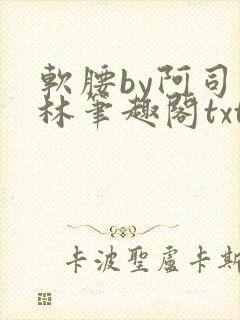 軟腰by阿司
林筆趣閣txt
卡波聖盧卡斯